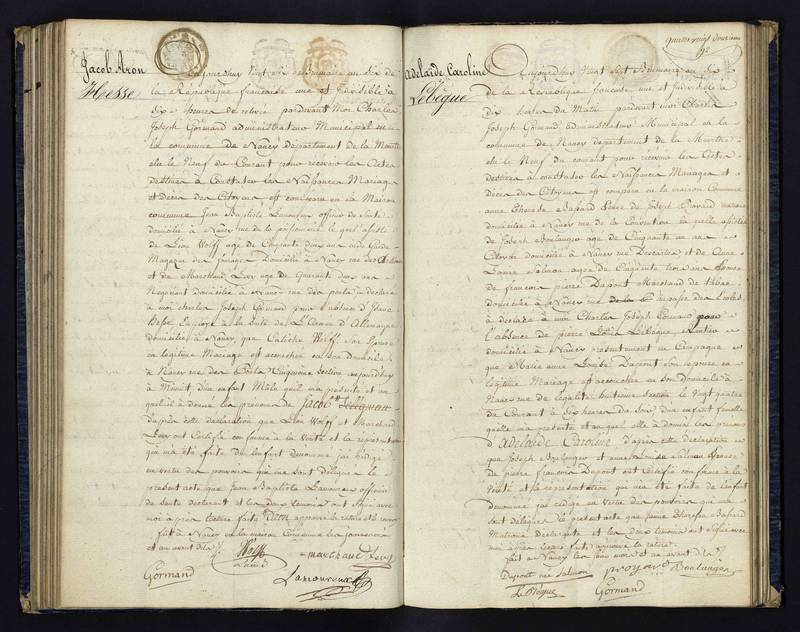 Jacob Aron
Hesse
Aujourdhuy Vingt six Brumaire an Six de
la Republique francaise une et Indivisible à
Six heures de relevée pardevant Moi Charles
Joseph Gormand administrateur Municipal de
la commune de Nancy Département de la Meurthe
elu le Neuf du Courant pour recevoir les Actes
destinés à Constater les Naissances Mariages
et Décès des Citoyens, est comparu en la Maison
commune Jean Baptiste Lamoureux officier de Santé
domicilié à Nancy rue de la
de Léon Wolff agé de Cinquante deux ans
Magazin des fourages Domicilié à Nancy rue des
et de Marchand Levy agé de Quarante deux ans
Négotiant domicilié à Nancy rue des
à moi Charles Joseph Gormand pour l'absence d'
Hesse Employé à la suite de L'Armée d'Allemagne
domicilié à Nancy que Wolff son Epouse
en legitime Mariage est accouchée en son Domicile
à Nancy rue des Cinquieme Section aujourd'huy
à Minuit d'un enfant Mâle qu'il m'a presenté et au
quel il a donné les prénoms de Jacob
d'après cette declaration que Léon Wolff et Marchand
Levy ont Certifié conforme à la Verité et la représentation
qui m'a été faite de l'enfant dénommé j'ai rédigé
en vertu des pouvoirs qui me sont délégués le
présent acte que Jean Baptiste Lamoureux officier
de Santé declarant et les deux temoins ont signé avec
moi après lecture faite Aron approuvé la rature et le renvoy
fait à Nancy en la maison Commune les jour mois
et an avant dits
Wolff
marchand Levy
Gormand
Lamoureux
quatre vingt douzieme
92
Adelaide Caroline
Lebègue
Aujourdhuy Vingt Sept Brumaire an Six
de la Republique francaise une et Indivisible à
Dix heures du Matin pardevant moi Charles
Joseph Gormand administrateur Municipal de la
commune de Nancy departement de la Meurthe
elu le Neuf du courant pour recevoir les Actes
destinés à constater les Naissances Mariages et
Décès des Citoyens est comparu en la maison Commune
anne Therese Bassard femme de Joseph
domiciliée à Nancy rue de la Convention la quelle assistée
de Joseph Boulanger agé de Cinquante un ans
Citoyen domicilié à Nancy rue Descartes et de Anne
Louise Salmon agée de Cinquante trois ans Epouse
de françois pierre Dupont Marchand de tabac
domicilié à Nancy rue
à déclaré à moi Charles Joseph Gormand pour
l'absence de pierre Louis Lebègue Rentier
domicilié à Nancy presentement en Campagne
que Marie anne Louise Dupont son epouse en
legitime Mariage est accouchée en son Domicile à
Nancy rue de l'egalité huitieme section le Vingt quatre
du Courant à Six heures du Soir d'un enfant femelle
qu'elle m'a presenté et au quel elle a donné les prenoms
d'Adelaide Caroline d'après cette declaration
que Joseph Boulanger et anne Louise Salmon Epouse
de pierre francois Dupont ont certifié conforme à la
Verité et la representation qui m'a été faite de l'enfant
dénommé j'ai rédigé en vertu des pouvoirs qui me
sont délégués le présent acte que anne Therese Bassard
Matrone declarante et les deux temoins ont signé avec
moi après lecture faite, approuvé la rature
fait à Nancy les jour mois et an avant dits
Dupont née Salmon
Boulanger
Le Bègue
Gormand